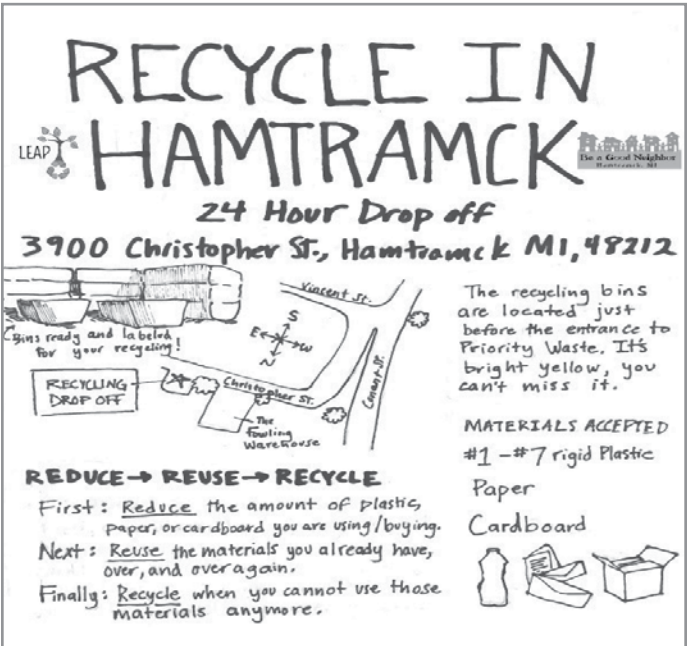 RECYCLE IN
LEAP
HAMTRAMCK
Be a Good Neighbor
Hamtramck, MI
24 Hour Drop off
3900 Christopher ST., Hamtramck MI, 48212
Bins ready and labeled
for your recycling!
Vincent St.
S
E
W
N
Christopher ST.
Conant St.
RECYCLING
DROP OFF
The
Fowling
Warehouse
The recycling bins
are located just
before the entrance to
Priority Waste. It's
bright yellow, you
can't miss it.
MATERIALS ACCEPTED
#1 - #7 rigid Plastic
Paper
Cardboard
REDUCE → REUSE → RECYCLE
First: Reduce the amount of plastic,
paper, or cardboard you are using/buying.
Next: Reuse the materials you already have,
over, and over again.
Finally: Recycle when you cannot use those
materials anymore.